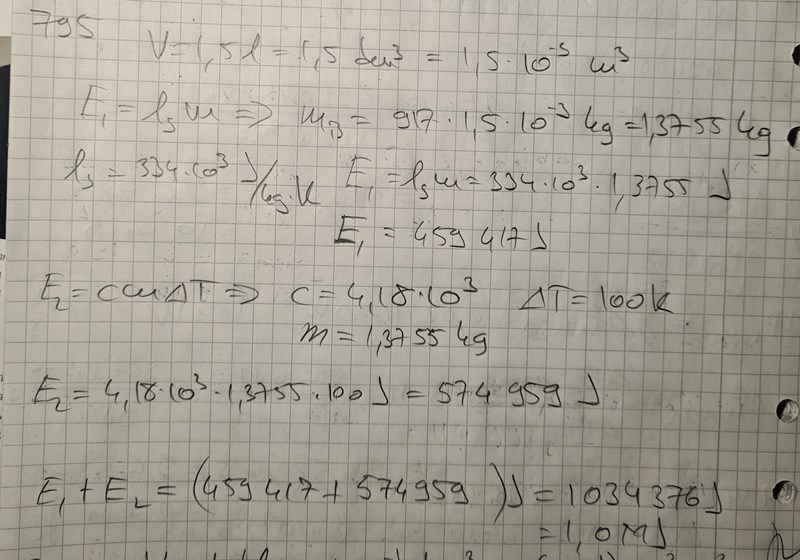 795
V = 1,5 l = 1,5 dm³ = 1,5 · 10⁻³ m³
E₁ = lₛ m => m = 917 · 1,5 · 10⁻³ kg = 1,3755 kg
lₛ = 334 · 10³ J/kg·K E₁ = lₛ m = 334 · 10³ · 1,3755 J
E₁ = 459 417 J
E₂ = c m ΔT => c = 4,18 · 10³ ΔT = 100 K
m = 1,3755 kg
E₂ = 4,18 · 10³ · 1,3755 · 100 J = 574 959 J
E₁ + E₂ = (459 417 + 574 959) J = 1034 376 J
= 1,0 MJ